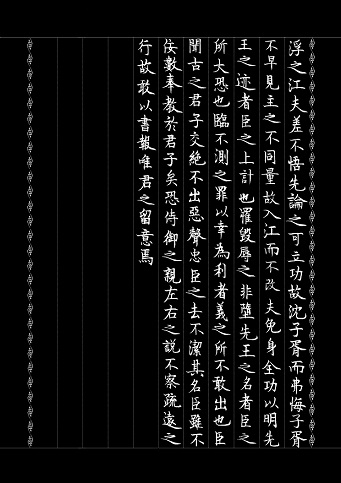 浮之江夫差不悟先論之可立功故沈子胥而弗悔子胥
不早見主之不同量故入江而不改夫免身全功以明先
王之迹者臣之上計也罹毀辱之非墮先王之名者臣之
所大恐也臨不測之罪以幸為利者義之所不敢出也臣
聞古之君子交絶不出惡聲忠臣之去不潔其名臣雖不
佞數奉教於君子矣恐侍御之親左右之說不察疏遠之
行故敢以書報唯君之留意焉